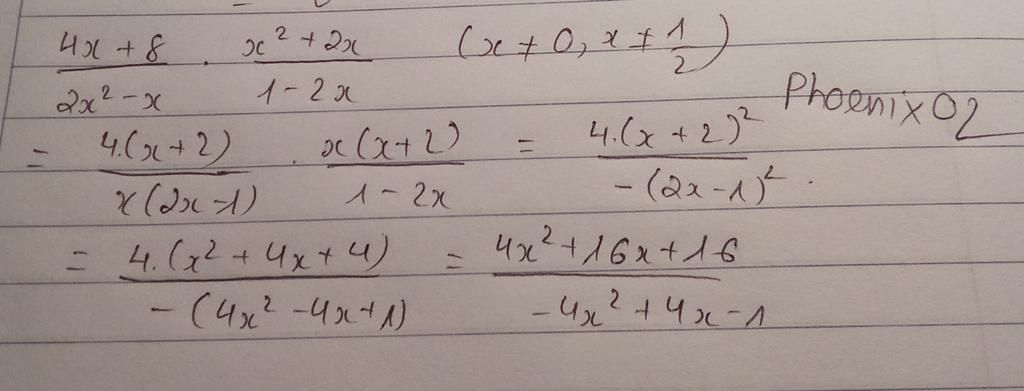 4x + 8 / 2x² - x . x² + 2x / 1 - 2x (x ≠ 0, x ≠ 1/2)
Phoenix02
= 4.(x + 2) / x(2x - 1) . x(x + 2) / 1 - 2x = 4.(x + 2)² / -(2x - 1)² .
= 4.(x² + 4x + 4) / -(4x² - 4x + 1) = 4x² + 16x + 16 / -4x² + 4x - 1